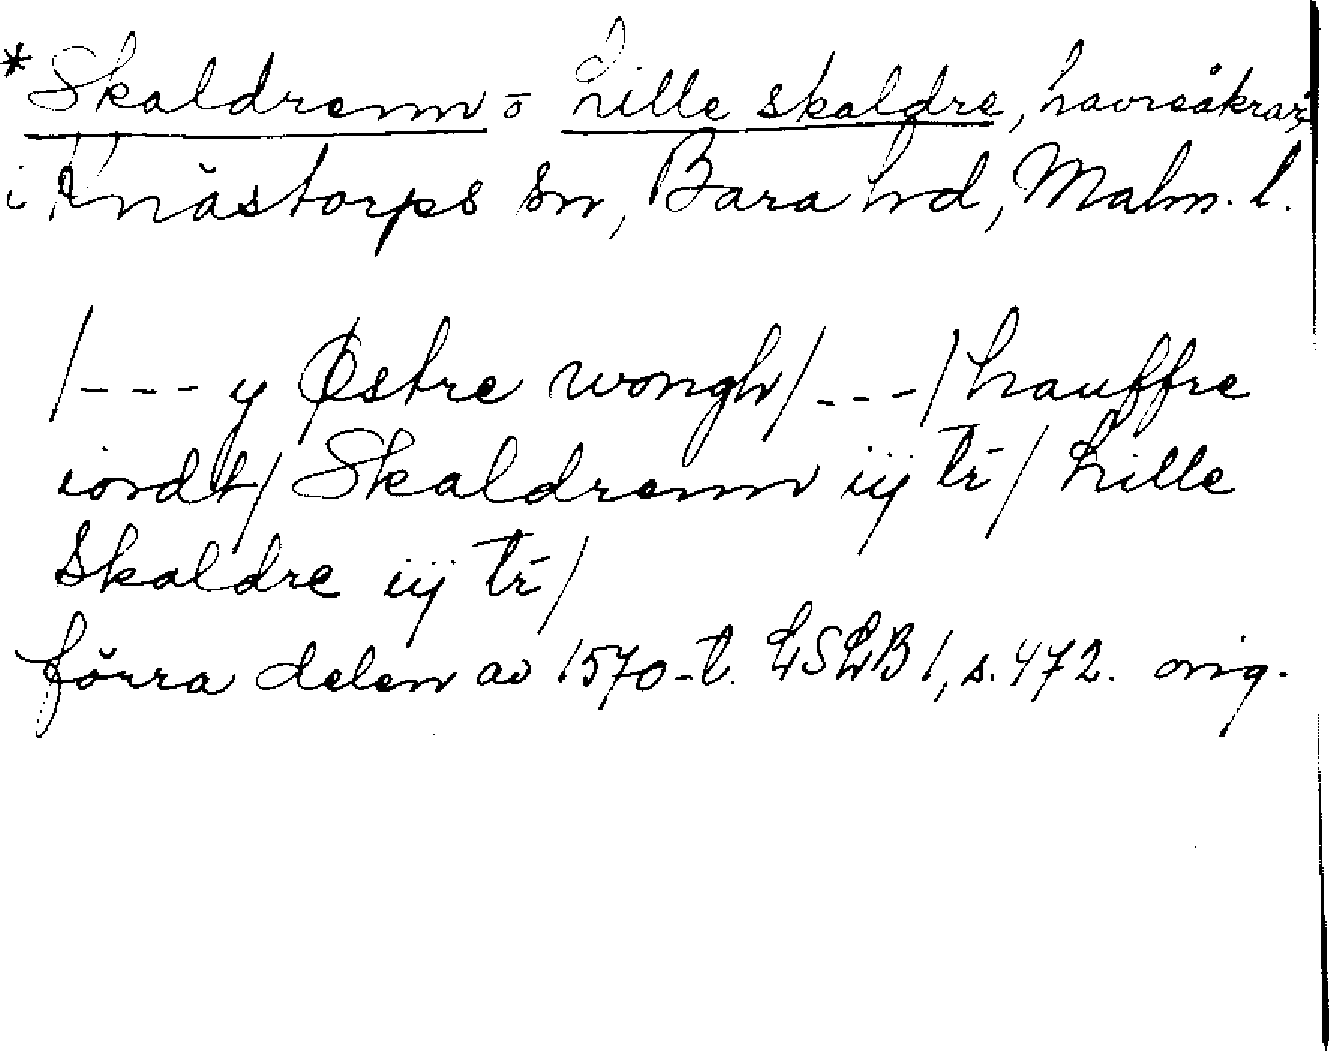 *Skaldrenn o Lille skaldre, havreåkrar
i Knästorps sn, Bara hd, Malm. l.
/--- y Østre wongh/---/hauffre
iordt/ Skaldrenn iij tr/ Lille
Skaldre iij tr/
förra delen av 1570-t. LSLB 1, s. 472. orig.